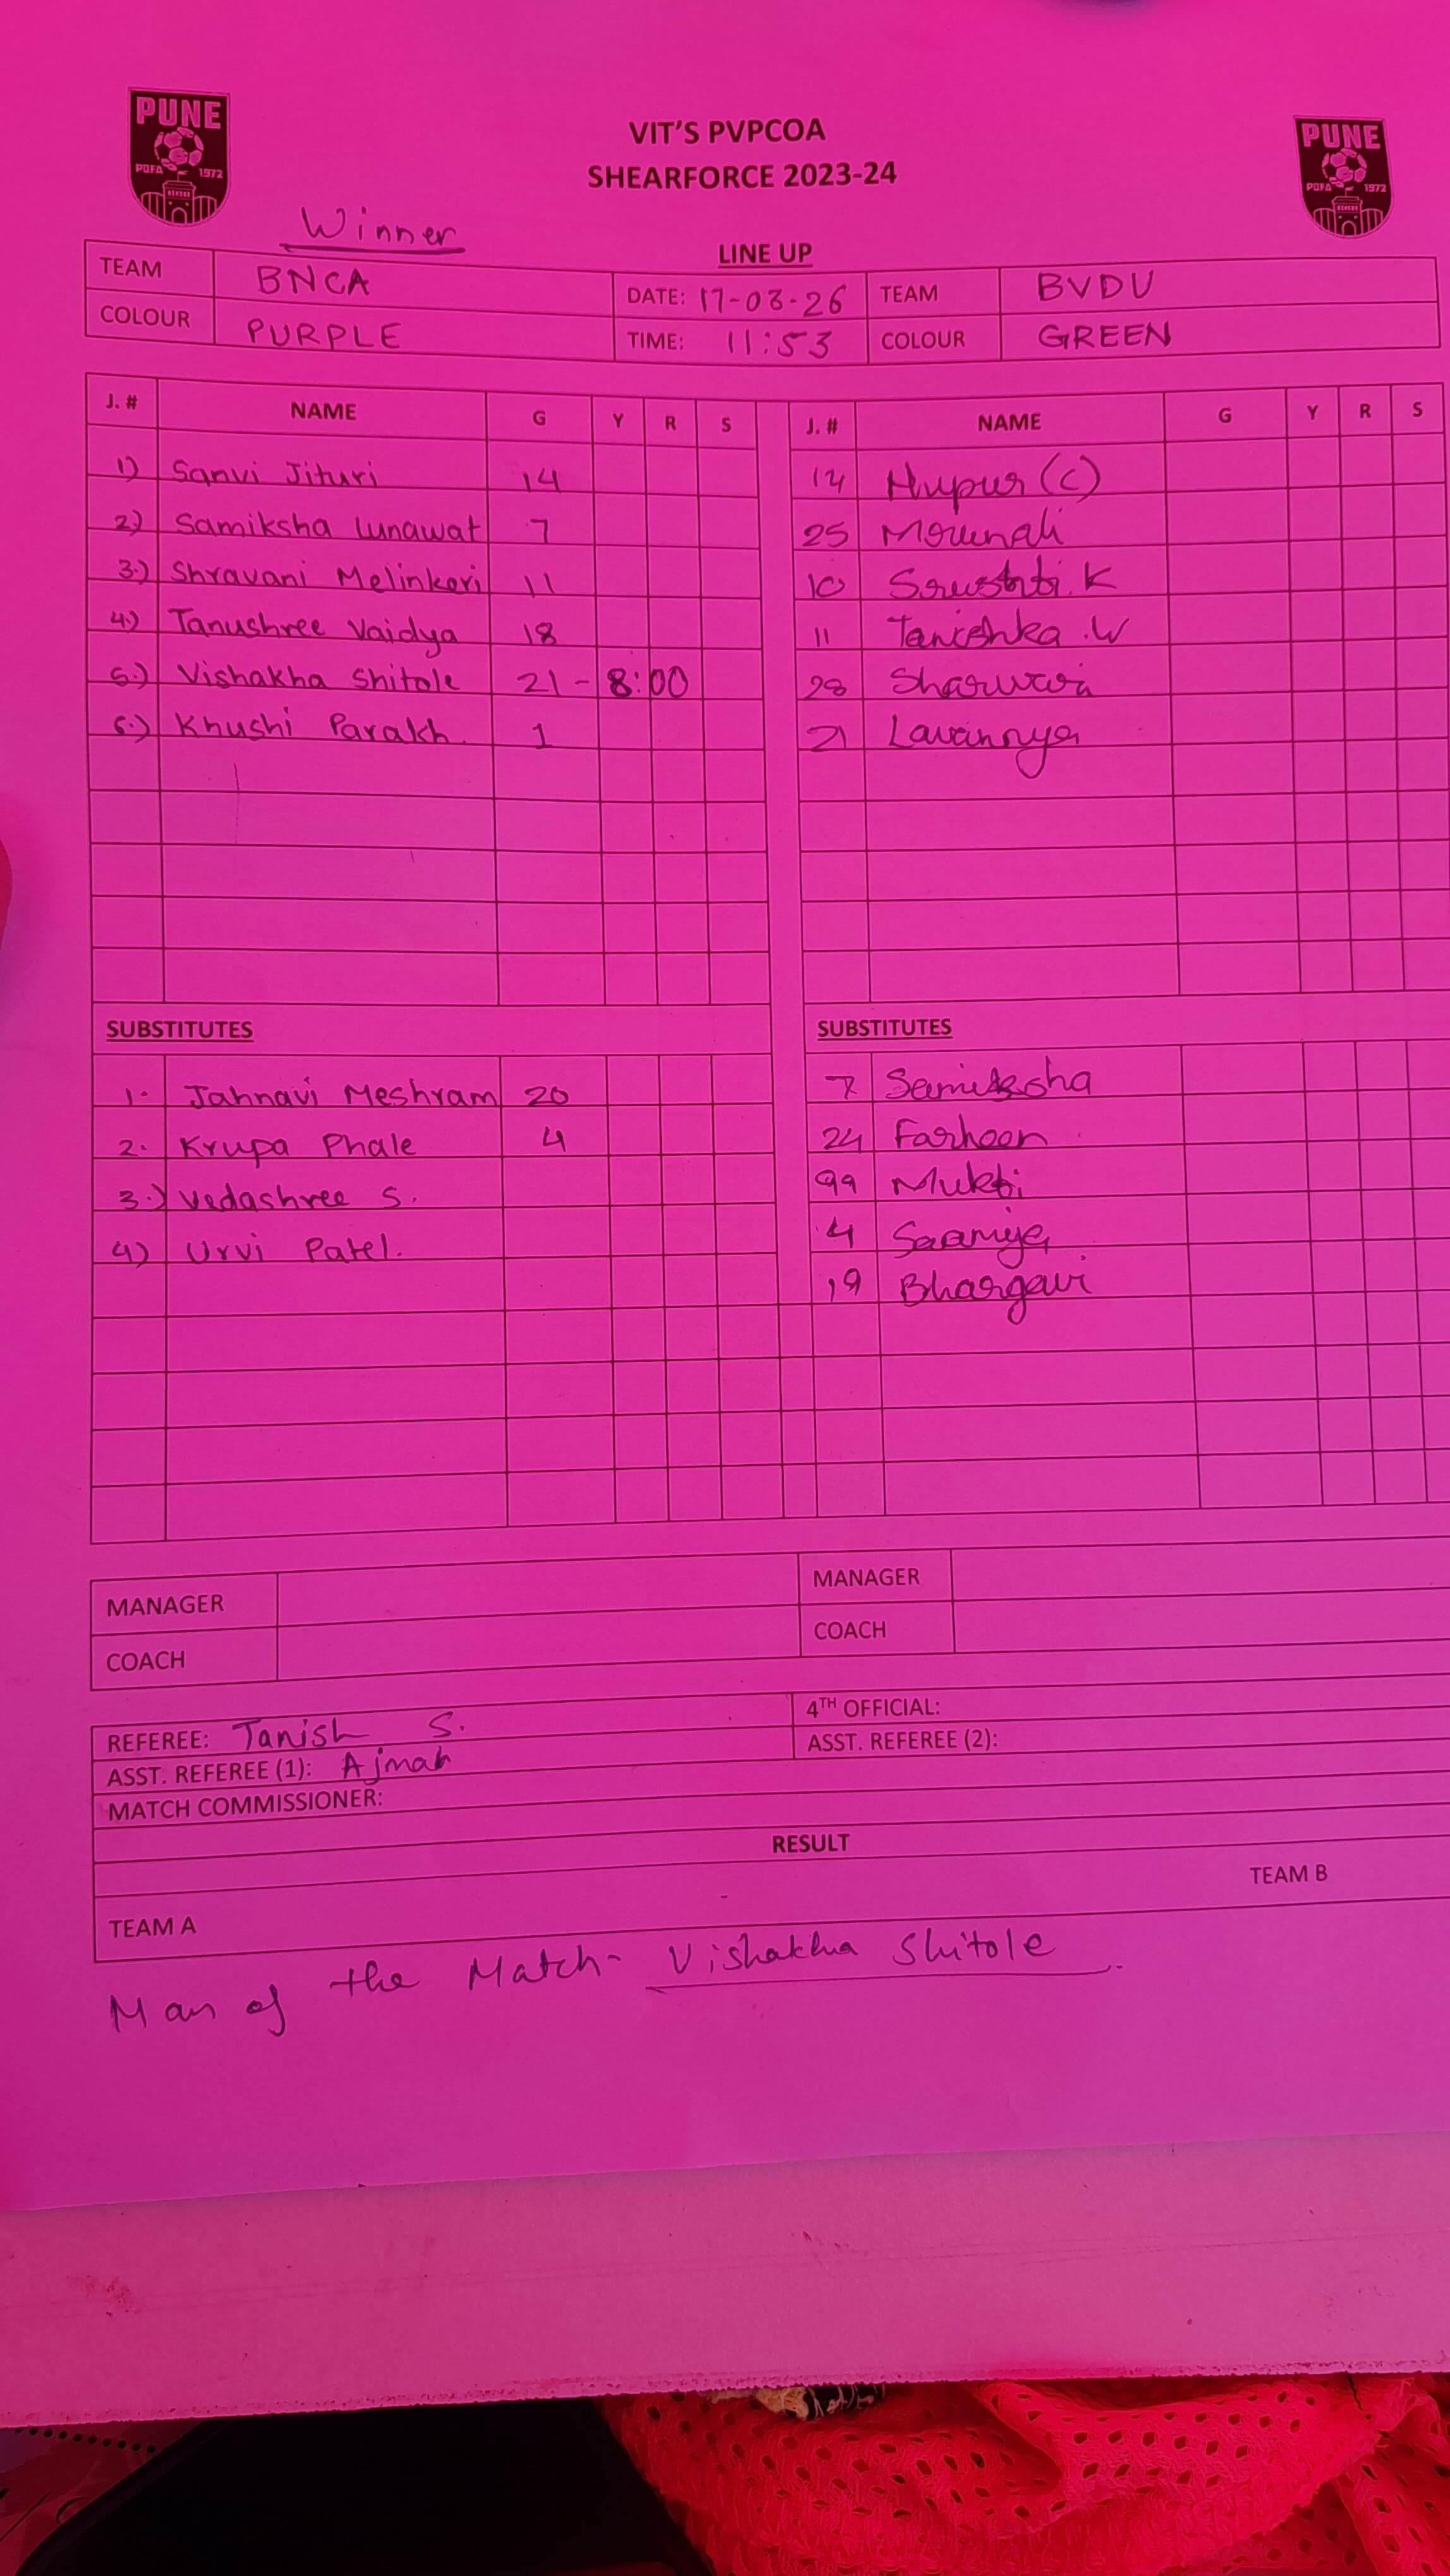 PUNE
PDFA 1972
VIT'S PVPCOA
SHEARFORCE 2023-24
PUNE
PDFA 1972
Winner
LINE UP
TEAM BNCA DATE: 17-03-26 TEAM BVDU
COLOUR PURPLE TIME: 11:53 COLOUR GREEN
J. # NAME G Y R S J. # NAME G Y R S
1) Sanvi Jituri 14 14 Nupur (C)
2) Samiksha Lunawat 7 25 Mrunali
3.) Shravani Melinkeri 11 10 Srushti.K
4.) Tanushree Vaidya 18 11 Tanishka .W
5.) Vishakha Shitole 21 - 8:00 28 Sharwari
6.) Khushi Parakh. 1 21 Lavannya
SUBSTITUTES SUBSTITUTES
1. Jahnavi Meshram 20 7 Samiksha
2. Krupa Phale 4 24 Farheen
3.) Vedashree S. 99 Mukti
4) Urvi Patel. 4 Saamiya
19 Bhargavi
MANAGER MANAGER
COACH COACH
REFEREE: Tanish S. 4TH OFFICIAL:
ASST. REFEREE (1): ASST. REFEREE (2):
MATCH COMMISSIONER:
RESULT
TEAM A - TEAM B
Man of the Match- Vishakha Shitole.